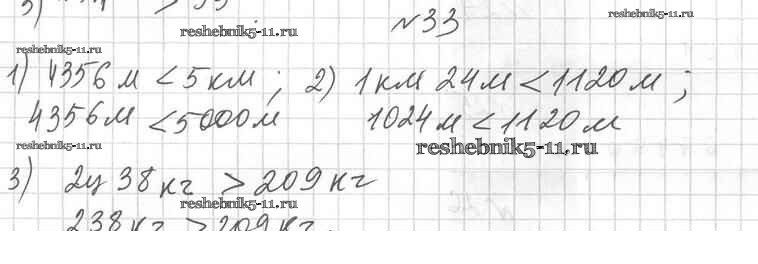 №33
1) 4356 м < 5 км ; 2) 1 км 24 м < 1120 м ;
4356 м < 5000 м 1024 м < 1120 м
3) 2ц 38 кг > 209 кг
238 кг > 209 кг.
reshebnik5-11.ru
reshebnik5-11.ru
reshebnik5-11.ru
reshebnik5-11.ru
reshebnik5-11.ru
reshebnik5-11.ru